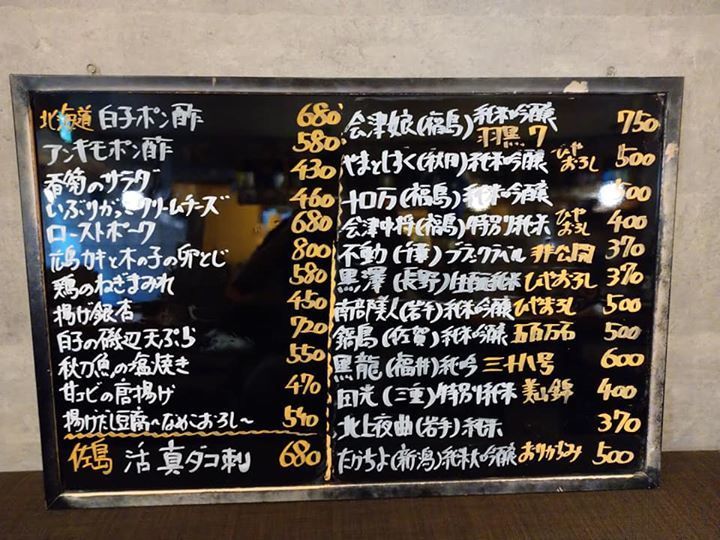 北海道 白子ポン酢 680
アンキモポン酢 580
春菊のサラダ 430
いぶりがっこクリームチーズ 460
ローストポーク 680
広島カキと木の子の卵とじ 800
鶏のねぎまみれ 580
揚げ銀杏 450
白子の磯辺天ぷら 720
秋刀魚の塩焼き 550
甘エビの唐揚げ 470
揚げだし豆腐〜なめこおろし〜 540
佐島 活 真ダコ刺 680
会津娘(福島)純米吟醸 羽黒 7 750
やまとしずく(秋田)純米吟醸 ひやおろし 500
十口万(福島)純米吟醸 500
会津中将(福島)特別純米 ひやおろし 400
不動(千葉)ブラックラベル 非公開 370
黒澤(長野)生酛純米 ひやおろし 370
南部美人(岩手)純米吟醸 ひやおろし 500
鍋島(佐賀)純米吟醸 五百万石 500
黒龍(福井)純吟 三十八号 600
田光(三重)特別純米 美山錦 400
北上夜曲(岩手)純米 370
たけちよ(新潟)純米吟醸 おりがらみ 500